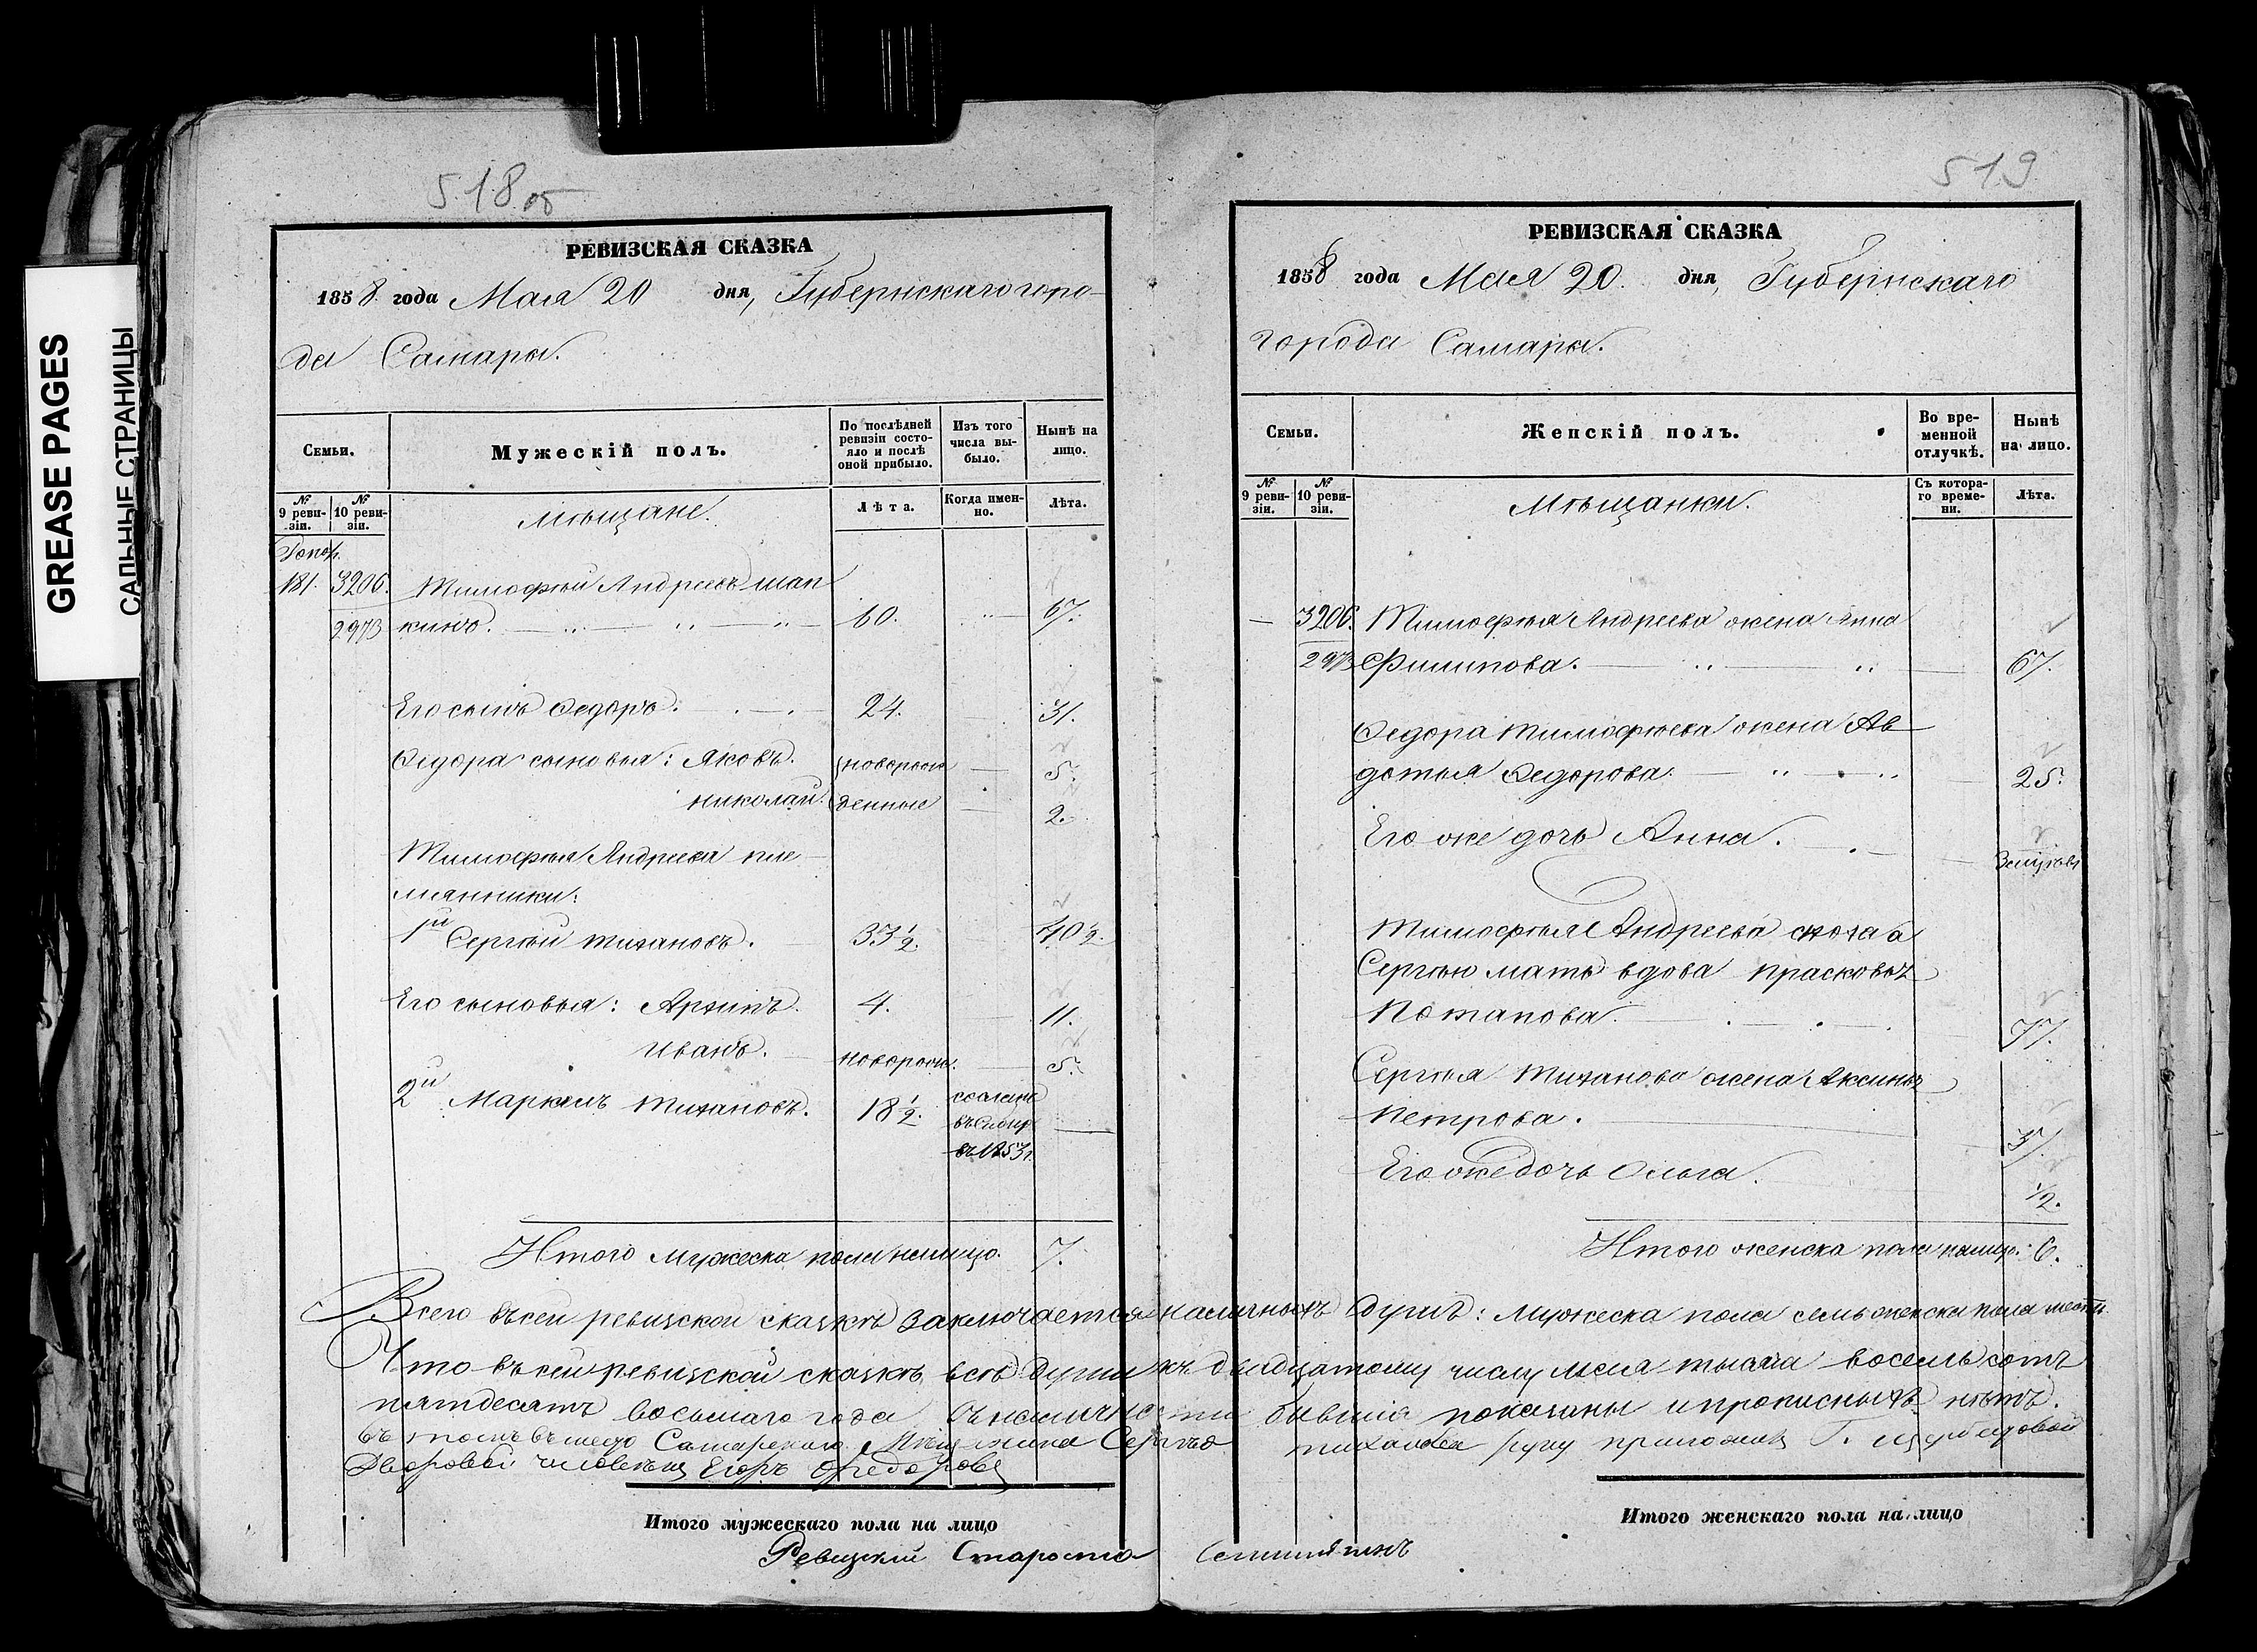 GREASE PAGES
САЛЬНЫЕ СТРАНИЦЫ
518 об
РЕВИЗСКАЯ СКАЗКА
1858 года Мая 20 дня, Губернскаго горо-
да Самары.
Семьи.
Мужескій полъ.
По послѣдней ревизіи состояло и послѣ оной прибыло.
Изъ того числа выбыло.
Нынѣ на лицо.
№ 9 ревизіи.
№ 10 ревизіи.
Мѣщане.
Лѣта.
Когда именно.
Лѣта.
181. 3206. Тимофей Андреевъ Шап
2973 кинъ. 60. 67.
Его сынъ Федоръ. 24. 31.
Федора сыновья: Яковъ. новорож 5.
Николай. денные 2.
Тимофея Андреева пле-
мянники:
1й Сергей Тихановъ. 33 1/2. 40 1/2.
Его сыновья: Архипъ. 4. 11.
Иванъ. новорож. 5.
2й Маркелъ Тихановъ. 18 1/2. сосланъ
въ Сибир
въ 1853 г.
Итого мужеска пола налицо. 7.
519
РЕВИЗСКАЯ СКАЗКА
1858 года Мая 20. дня, Губернскаго
города Самары.
Семьи.
Женскій полъ.
Во временной отлучкѣ.
Нынѣ на лицо.
№ 9 ревизіи.
№ 10 ревизіи.
Мѣщанки.
Съ котораго времени.
Лѣта.
3206. Тимофея Андреева жена Анна
2973 Филипова. 67.
Федора Тимофеева жена Ав-
дотья Федорова. 25.
Его же дочь Анна.
Тимофея Андреева сноха а
Сергею мать вдова Прасковья
Потапова. 77.
Сергея Тиханова жена Аксинья
Петрова. 37.
Его же дочь Ольга. 1/2.
Итого женска пола налицо. 6.
Всего въ сей ревизской сказкѣ заключается наличныхъ душъ: мужеска пола семь женска пола шесть.
Что въ сей ревизской сказкѣ всѣ души къ двадцатому числу мая тысяча восемь сотъ
пятдесятъ восьмаго года въ наличности бывшіе показаны и прописныхъ нѣтъ.
въ томъ вместо Самарскаго Мѣщанина Сергея Тиханова руку приложилъ Г.
Дворовой человекъ Егоръ Федоровъ
Итого мужескаго пола на лицо
Итого женскаго пола на лицо
Ревизскій Староста